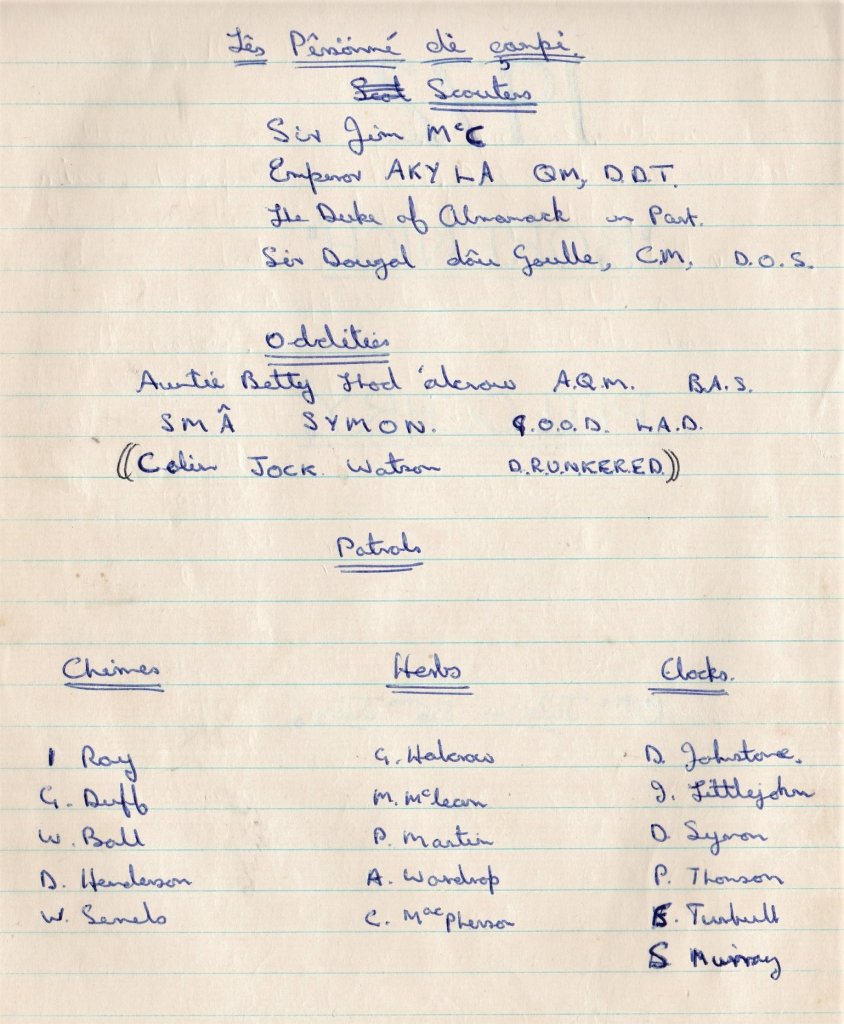 Lês Pêrsönné dè çampé.
Scouters
Sir Jim McC
Emperor AKYLA QM, D.D.T.
The Duke of Almanack in Part.
Sir Dougal dâu Gaulle, C.M, D.O.S.
Oddities
Auntie Betty Hod 'alcrow A.Q.M. B.A.S.
SMÂ SYMON. G.O.O.D. L.A.D.
((Colin JOCK Watson D.R.U.N.K.E.R.E.D.))
Patrols
Chimes Herbs Clocks.
I Ray G. Halcrow D. Johnstone.
G. Duff M. McLean J. Littlejohn
W. Ball P. Martin D. Symon
D. Henderson A. Wardrop P. Thomson
W. C. MacPherson E. Turbull
S Murray